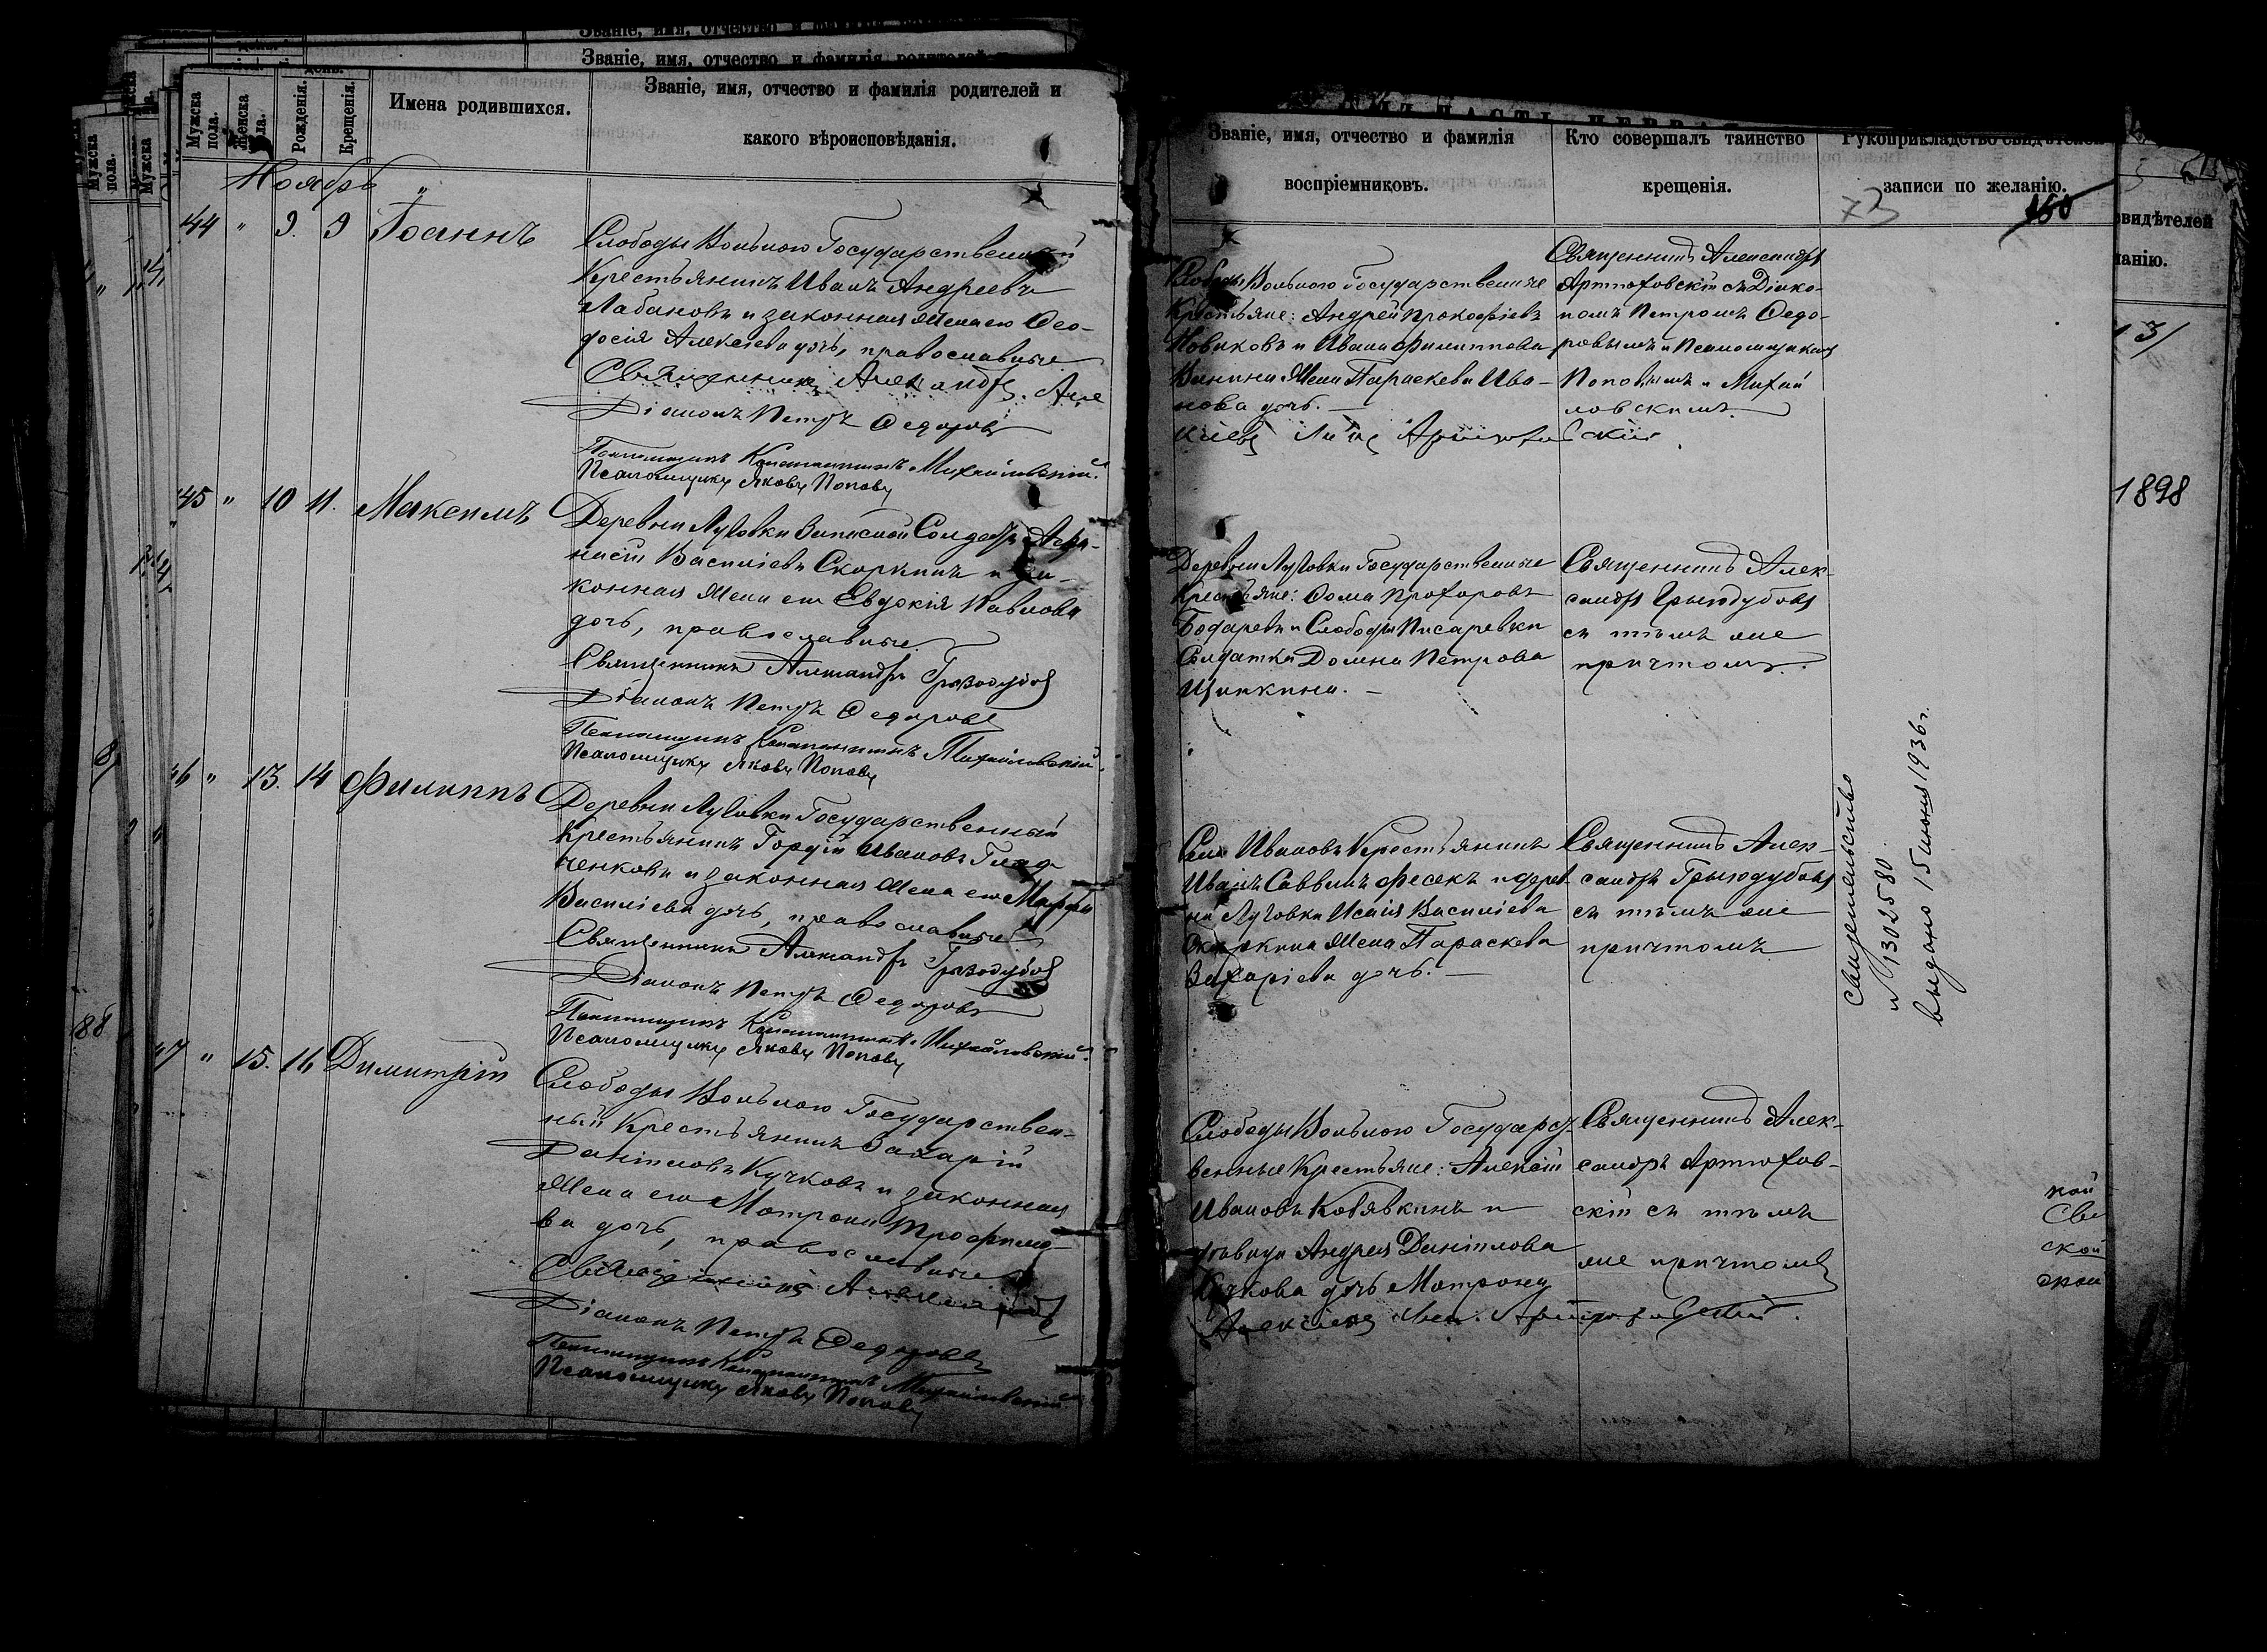 Званіе, имя, отчество и фамилія родителей
Званіе, имя, отчество и фамилія родителей и
какого вѣроисповѣданія.
Мужска пола.
Женска пола.
день.
Рожденія.
Крещенія.
Имена родившихся.
Ноябрь
44 " 9. 9 Іоаннъ
Слободы Вольною Государственный
Крестьянинъ Иванъ Андреевъ
Лабановъ и законная жена его Ѳео-
досія Алексіева дочь, православные
Священникъ Александръ
Діаконъ Петръ Ѳедоровъ
Псаломщикъ Константинъ Михайловскій.
Псаломщикъ Яковъ Поповъ
45 " 10 11. Максимъ
Деревни Луговки Запасной Солдатъ Аѳа-
насій Василіевъ Скоркинъ и за-
конная жена его Евдокія Павлова
дочь, православные.
Священникъ Александръ Грызодубовъ
Діаконъ Петръ Ѳедоровъ
Псаломщикъ Константинъ Михайловскій.
Псаломщикъ Яковъ Поповъ
46 " 13. 14 Филиппъ
Деревни Луговки Государственный
Крестьянинъ Гордій Ивановъ Глад-
ченковъ и законная жена его Марфа
Василіева дочь, православные
Священникъ Александръ Грызодубовъ
Діаконъ Петръ Ѳедоровъ
Псаломщикъ Константинъ Михайловскій.
Псаломщикъ Яковъ Поповъ
47 " 15. 16 Димитрій
Слободы Вольною Государствен-
ный Крестьянинъ Захарій
Даніиловъ Кучковъ и законная
жена его Матрона Трофимо-
ва дочь, православные
Священникъ
Діаконъ Петръ Ѳедоровъ
Псаломщикъ Константинъ Михайловскій
Псаломщикъ Яковъ Поповъ
88
Званіе, имя, отчество и фамилія
воспріемниковъ.
Кто совершалъ таинство
крещенія.
Рукоприкладство свидѣтелей
записи по желанію.
73
Слободы Вольною Государственные
Крестьяне: Андрей Прокофіевъ
Новиковъ и Ивана Филиппова
Ванина жена Параскева Ива-
нова дочь.
Священникъ Александръ
Артюховскій съ Діако-
номъ Петромъ Ѳедо-
ровымъ и Псаломщиками
Поповымъ и Михай
ловскимъ.
Деревни Луговки Государственные
Крестьяне: Ѳома Прохоровъ
Бодаревъ и Слободы Писаревки
Солдатка Домна Петрова
Щипкина.
Священникъ Алек-
сандръ Грызодубовъ
съ тѣмъ же
причтомъ.
Села Ивановъ Крестьянинъ
Иванъ Саввинъ Фесекъ и дерев
ни Луговки Исаія Василіева
Скоркина жена Параскева
Захаріева дочь.
Священникъ Алек-
сандръ Грызодубовъ
съ тѣмъ же
причтомъ
Свидетельство
№ 1302580
выдано 15 июня 1936 г.
Слободы Вольною Государст-
венные Крестьяне: Алексій
Ивановъ Котявкинъ и
Андрея Даніилова
Кучкова дочь Матрона
Священникъ Алек-
сандръ Артюхов-
скій съ тѣмъ
же причтомъ
видѣтелей
ланію.
1898
ной
Сви
ской
ской